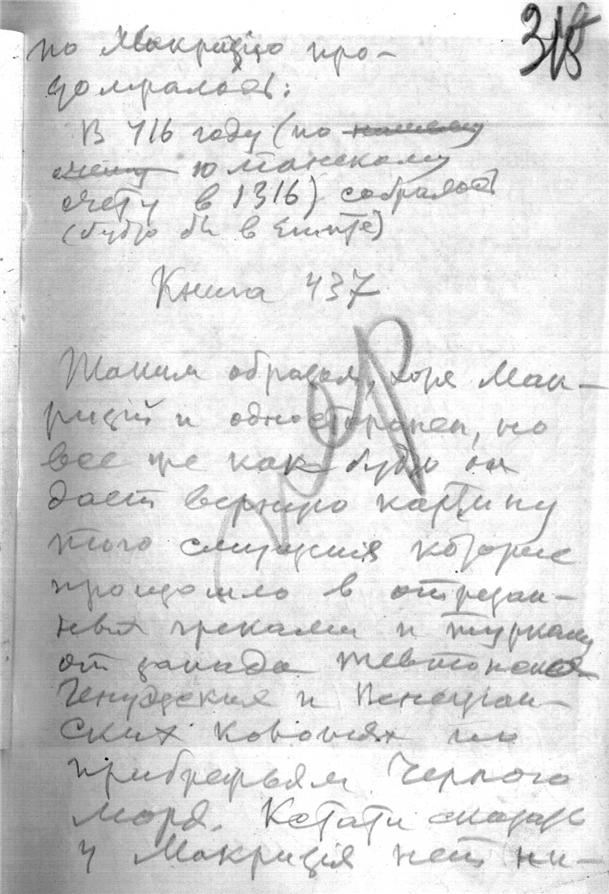 318
по Макризію про-
должалось:
В 716 году (по нашему
счету юлианскому
счету в 1316) собралось
(будто бы в Египте)
Книга 437
Таким образом, хотя Мак-
ризій и односторонен, но
все же как будто он
дает верную картину
того смущенія которое
произошло в отрезан-
ных греками и турками
от запада
Генуэзских и Венеціан-
ских колоніях по
прибрежьям Черного
моря. Кстати сказать
у Макризія нет ни-